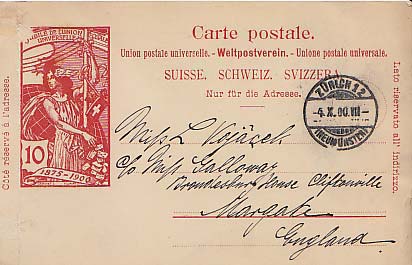 Carte postale.
Union postale universelle. - Weltpostverein. - Unione postale universale.
SUISSE. SCHWEIZ. SVIZZERA.
Nur für die Adresse.
Côté réservé à l'adresse.
Lato riservato all' indirizzo.
JUBILÉ DE L'UNION POSTALE
UNIVERSELLE
10
1875-1900
ZÜRICH 12
- 4. X. 00. VII -
(NEUMÜNSTER)
Miss L. Vojáček
c/o Miss Galloway
House Cliftonville
Margate
England